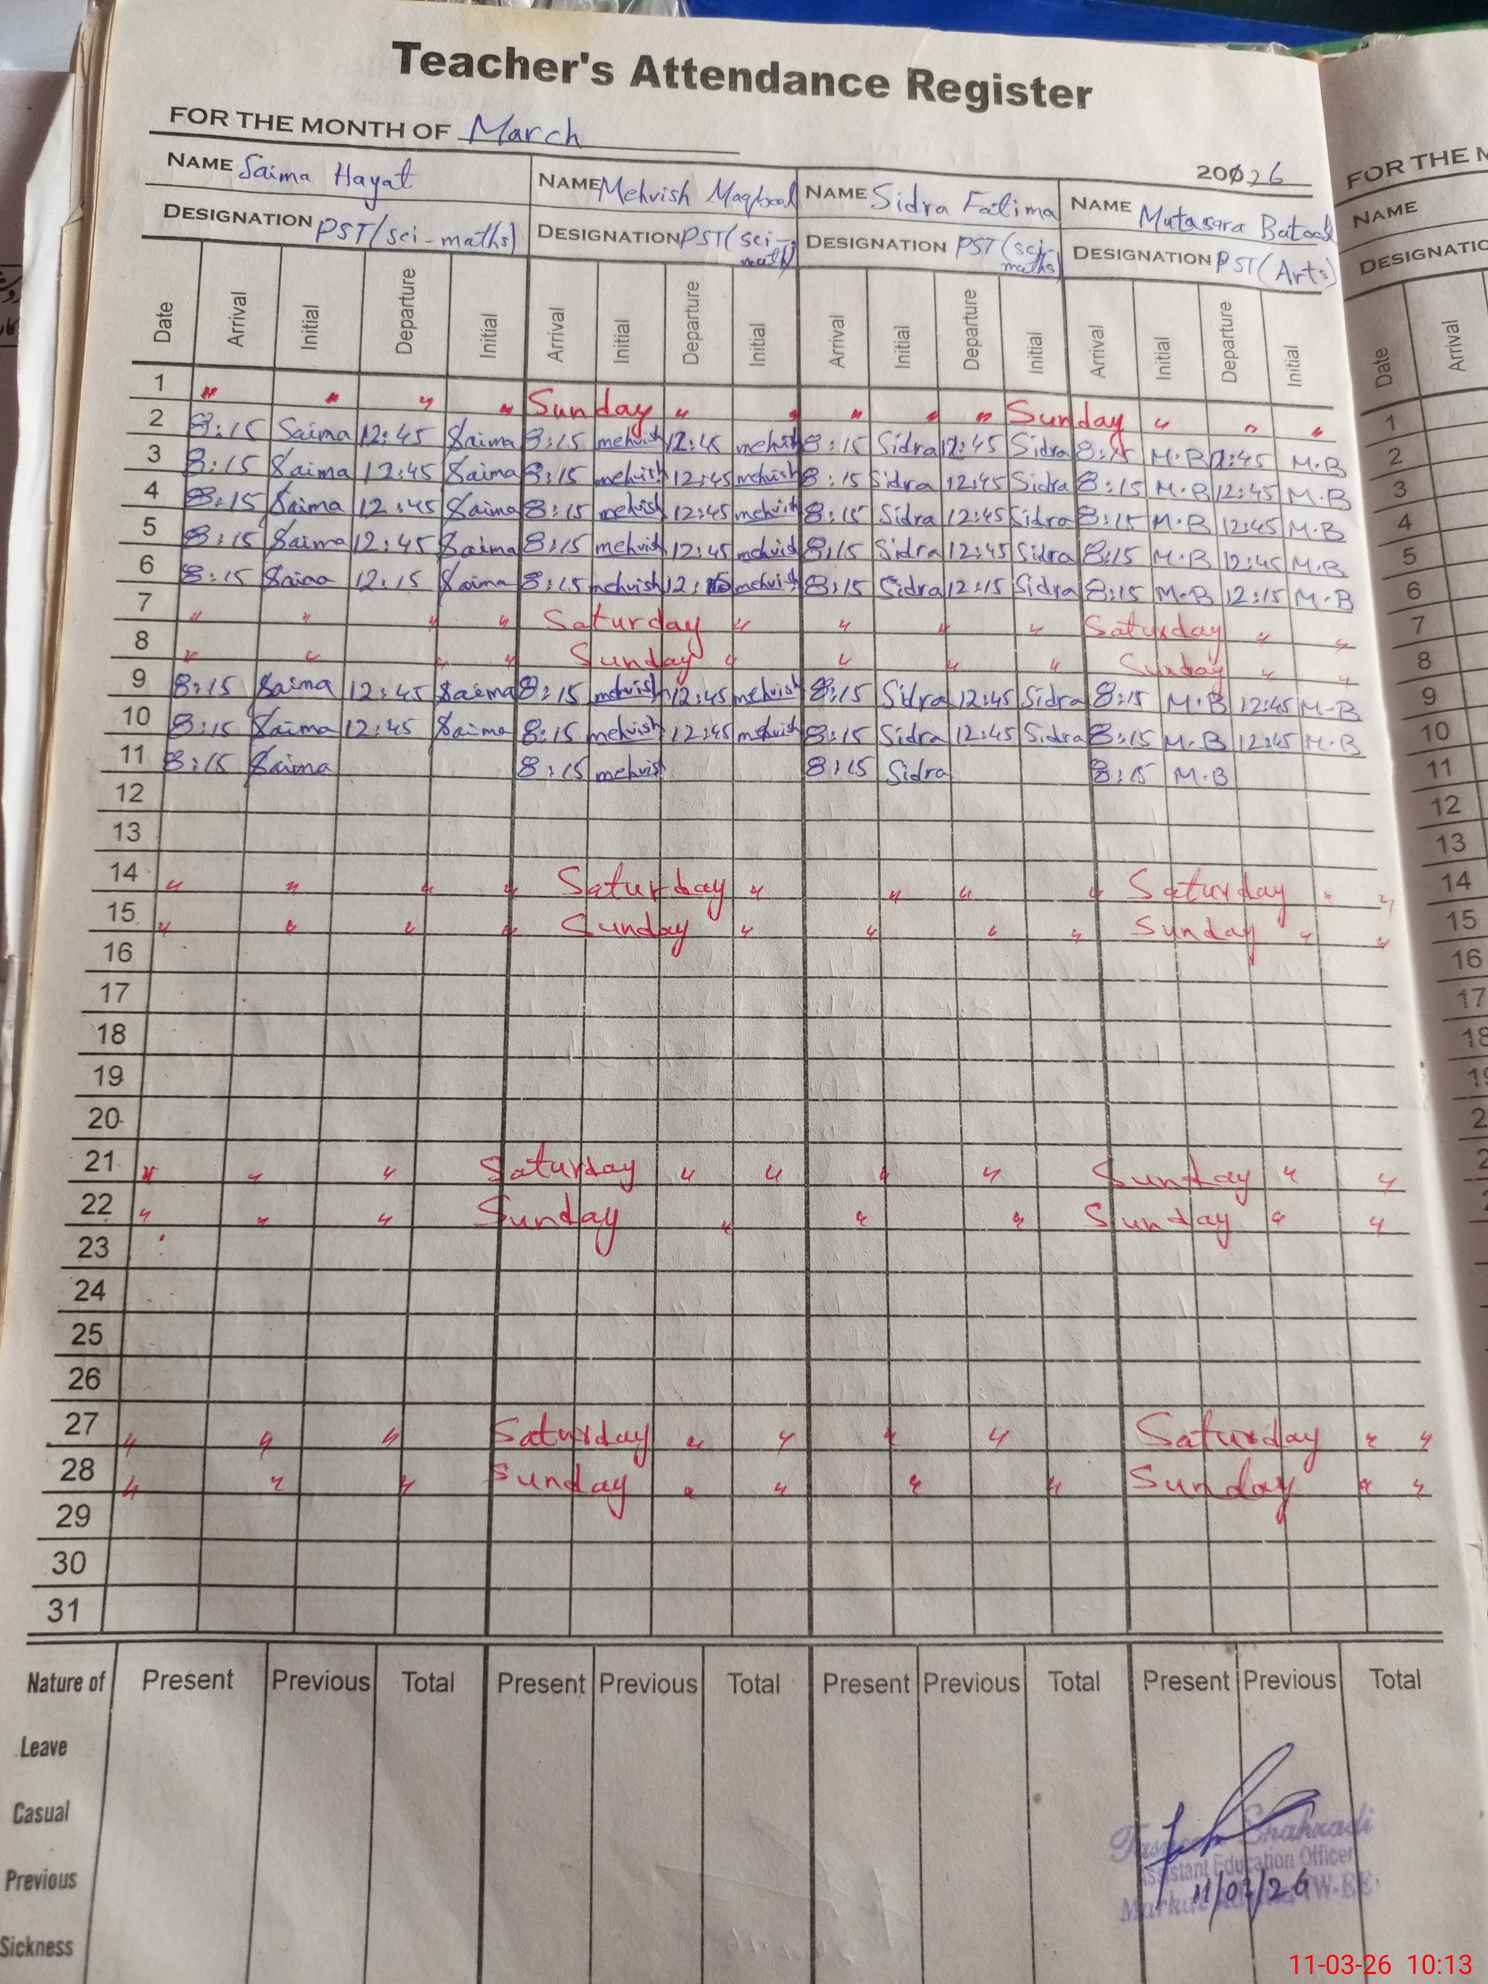 Teacher's Attendance Register
FOR THE MONTH OF March
2026
NAME Saima Hayat NAME Mehvish Maqbool NAME Sidra Fatima NAME Mutasara Batool
DESIGNATION PST(sci-maths) DESIGNATION PST(sci-math) DESIGNATION PST(sci-maths) DESIGNATION PST(Arts)
Date Arrival Initial Departure Initial Arrival Initial Departure Initial Arrival Initial Departure Initial Arrival Initial Departure Initial
1 " " " " Sunday " " " " " Sunday " " "
2 8:15 Saima 12:45 Saima 8:15 mehvish 12:45 mehvish 8:15 Sidra 12:45 Sidra 8:15 M.B 12:45 M.B
3 8:15 Saima 12:45 Saima 8:15 mehvish 12:45 mehvish 8:15 Sidra 12:45 Sidra 8:15 M.B 12:45 M.B
4 8:15 Saima 12:45 Saima 8:15 mehvish 12:45 mehvish 8:15 Sidra 12:45 Sidra 8:15 M.B 12:45 M.B
5 8:15 Saima 12:45 Saima 8:15 mehvish 12:45 mehvish 8:15 Sidra 12:45 Sidra 8:15 M.B 12:45 M.B
6 8:15 Saima 12:15 Saima 8:15 mehvish 12:15 mehvish 8:15 Sidra 12:15 Sidra 8:15 M.B 12:15 M.B
7 " " " " Saturday " " " " Saturday " "
8 " " " " Sunday " " " " Sunday " "
9 8:15 Saima 12:45 Saima 8:15 mehvish 12:45 mehvish 8:15 Sidra 12:45 Sidra 8:15 M.B 12:45 M.B
10 8:15 Saima 12:45 Saima 8:15 mehvish 12:45 mehvish 8:15 Sidra 12:45 Sidra 8:15 M.B 12:45 M.B
11 8:15 Saima 8:15 mehvish 8:15 Sidra 8:15 M.B
12
13
14 " " " " Saturday " " " " Saturday " "
15 " " " " Sunday " " " " Sunday " "
16
17
18
19
20
21 " " " Saturday " " " " Sunday " "
22 " " " Sunday " " " Sunday " "
23
24
25
26
27 " " " Saturday " " " " Saturday " "
28 " " " Sunday " " " " Sunday " "
29
30
31
Nature of Present Previous Total Present Previous Total Present Previous Total Present Previous Total
Leave
Casual
Previous
Sickness
Shahzadi
Assistant Education Officer
11/03/26
FOR THE M
NAME
DESIGNATIO
Date Arrival
1
2
3
4
5
6
7
8
9
10
11
12
13
14
15
16
17
18
11-03-26 10:13